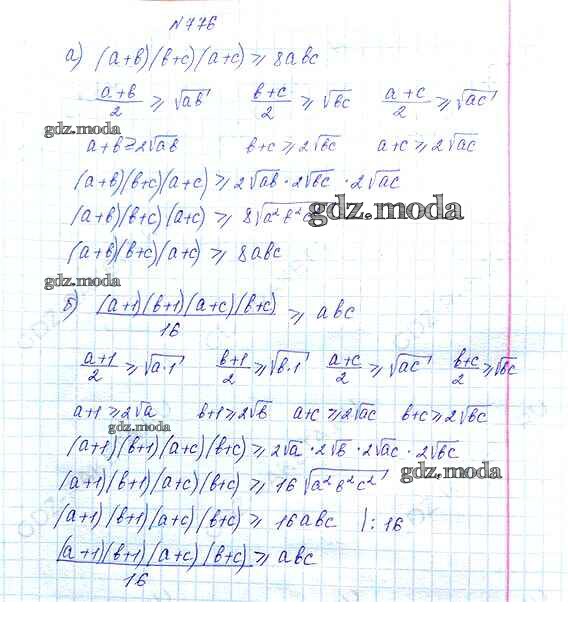 №776
а) (a+b)(b+c)(a+c) ≥ 8abc
(a+b)/2 ≥ √ab (b+c)/2 ≥ √bc (a+c)/2 ≥ √ac
gdz.moda
a+b ≥ 2√ab b+c ≥ 2√bc a+c ≥ 2√ac
(a+b)(b+c)(a+c) ≥ 2√ab · 2√bc · 2√ac
(a+b)(b+c)(a+c) ≥ 8√a²b²c²
gdz.moda
(a+b)(b+c)(a+c) ≥ 8abc
gdz.moda
б) (a+1)(b+1)(a+c)(b+c)/16 ≥ abc
(a+1)/2 ≥ √a·1 (b+1)/2 ≥ √b·1 (a+c)/2 ≥ √ac (b+c)/2 ≥ √bc
a+1 ≥ 2√a b+1 ≥ 2√b a+c ≥ 2√ac b+c ≥ 2√bc
gdz.moda
(a+1)(b+1)(a+c)(b+c) ≥ 2√a · 2√b · 2√ac · 2√bc
gdz.moda
(a+1)(b+1)(a+c)(b+c) ≥ 16√a²b²c²
(a+1)(b+1)(a+c)(b+c) ≥ 16abc |:16
(a+1)(b+1)(a+c)(b+c)/16 ≥ abc